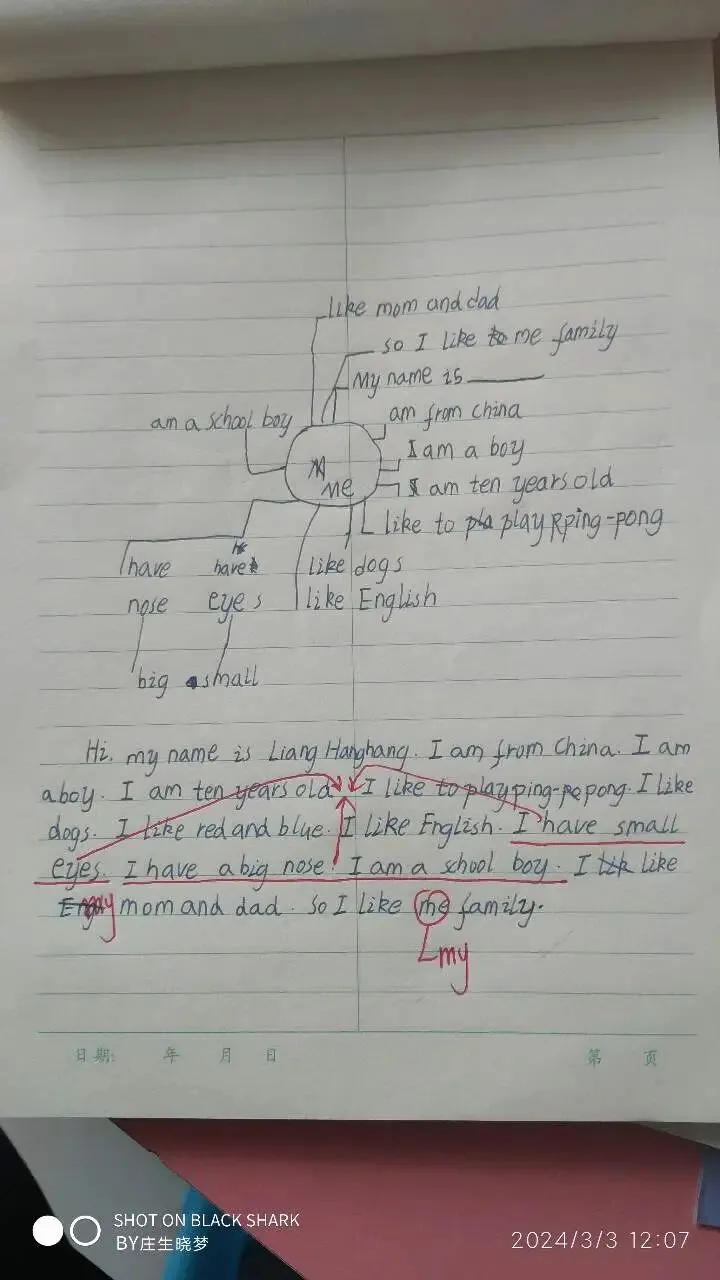 like mom and dad
so I like me family
My name is
am from China
am a school boy
I am a boy
Me
I am ten years old
like to play ping-pong
have have like dogs
nose eyes like English
big small
Hi, my name is Liang Hanghang. I am from China. I am
a boy. I am ten years old I like to play ping-pong. I like
dogs. I like red and blue. I like English. I have small
eyes. I have a big nose. I am a school boy. I like
my mom and dad. so I like me family.
my
日期: 年 月 日 第 页
SHOT ON BLACK SHARK
BY庄生晓梦 2024/3/3 12:07